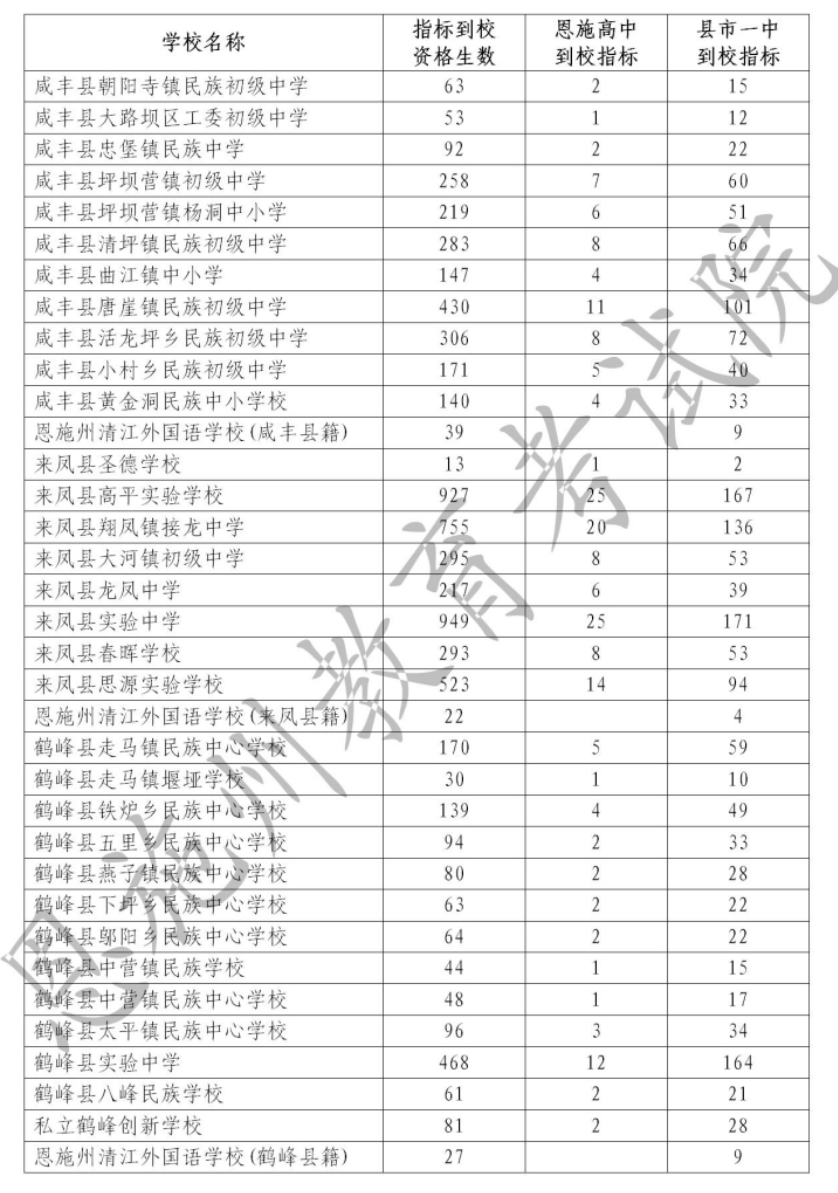 学校名称 指标到校资格生数 恩施高中到校指标 县市一中到校指标
咸丰县朝阳寺镇民族初级中学 63 2 15
咸丰县大路坝区工委初级中学 53 1 12
咸丰县忠堡镇民族中学 92 2 22
咸丰县坪坝营镇初级中学 258 7 60
咸丰县坪坝营镇杨洞中小学 219 6 51
咸丰县清坪镇民族初级中学 283 8 66
咸丰县曲江镇中小学 147 4 34
咸丰县唐崖镇民族初级中学 430 11 101
咸丰县活龙坪乡民族初级中学 306 8 72
咸丰县小村乡民族初级中学 171 5 40
咸丰县黄金洞民族中小学校 140 4 33
恩施州清江外国语学校(咸丰县籍) 39 9
来凤县圣德学校 13 1 2
来凤县高平实验学校 927 25 167
来凤县翔凤镇接龙中学 755 20 136
来凤县大河镇初级中学 295 8 53
来凤县龙凤中学 217 6 39
来凤县实验中学 949 25 171
来凤县春晖学校 293 8 53
来凤县思源实验学校 523 14 94
恩施州清江外国语学校(来凤县籍) 22 4
鹤峰县走马镇民族中心学校 170 5 59
鹤峰县走马镇堰垭学校 30 1 10
鹤峰县铁炉乡民族中心学校 139 4 49
鹤峰县五里乡民族中心学校 94 2 33
鹤峰县燕子镇民族中心学校 80 2 28
鹤峰县下坪乡民族中心学校 63 2 22
鹤峰县邬阳乡民族中心学校 64 2 22
鹤峰县中营镇民族学校 44 1 15
鹤峰县中营镇民族中心学校 48 1 17
鹤峰县太平镇民族中心学校 96 3 34
鹤峰县实验中学 468 12 164
鹤峰县八峰民族学校 61 2 21
私立鹤峰创新学校 81 2 28
恩施州清江外国语学校(鹤峰县籍) 27 9
恩施州教育考试院